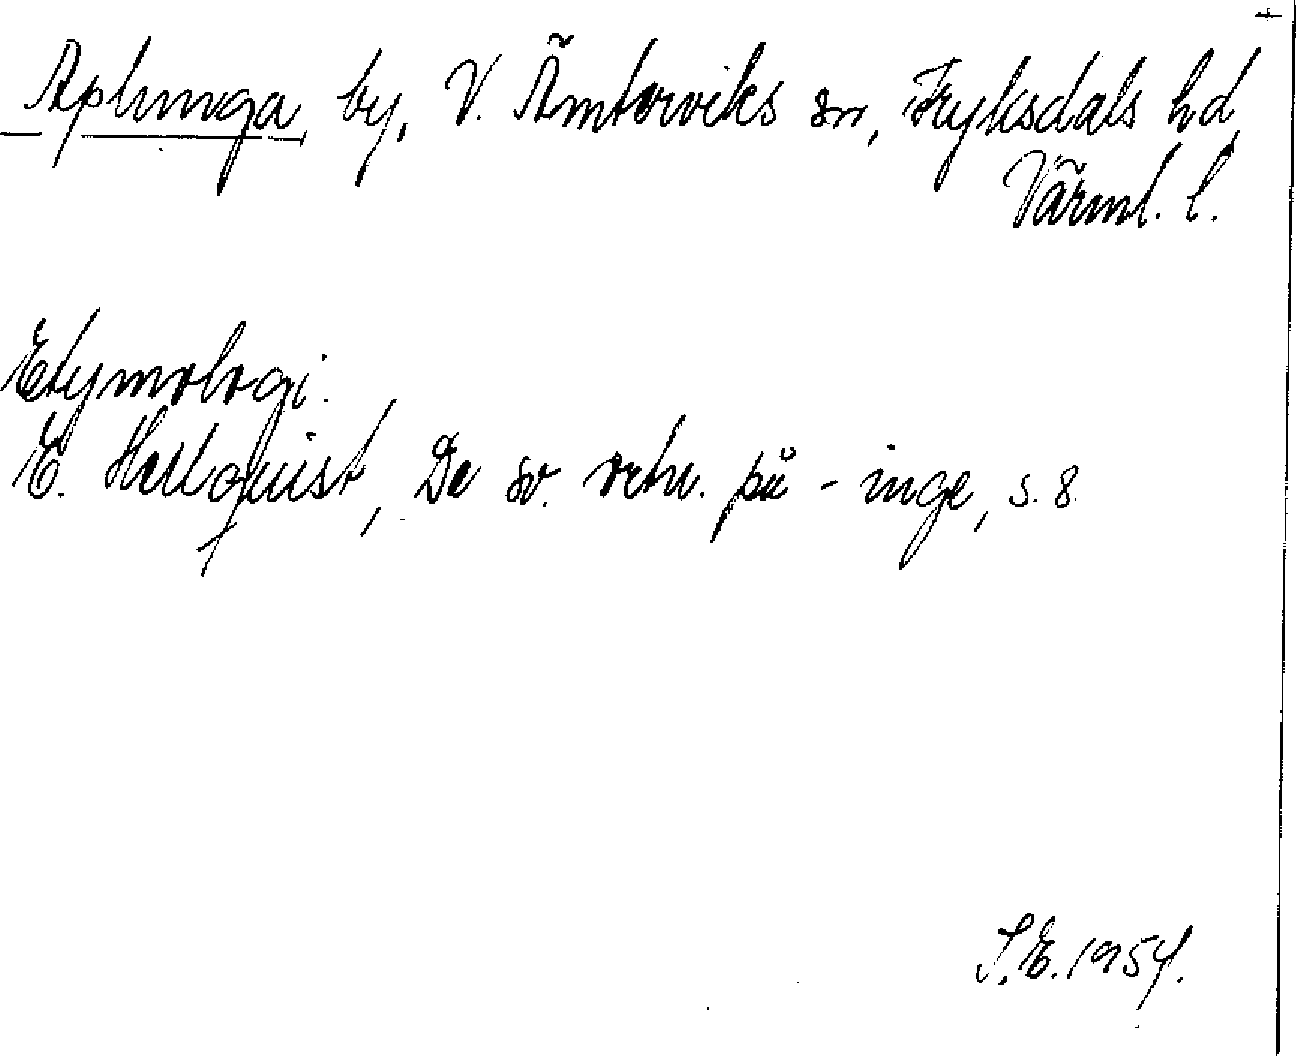 Aplunga by, V. Ämterviks sn, Fryksdals hd,
Värml. l.
Etymologi.
E. Hellquist, De sv. ortn. på -inge, s. 8
S.E. 1954.